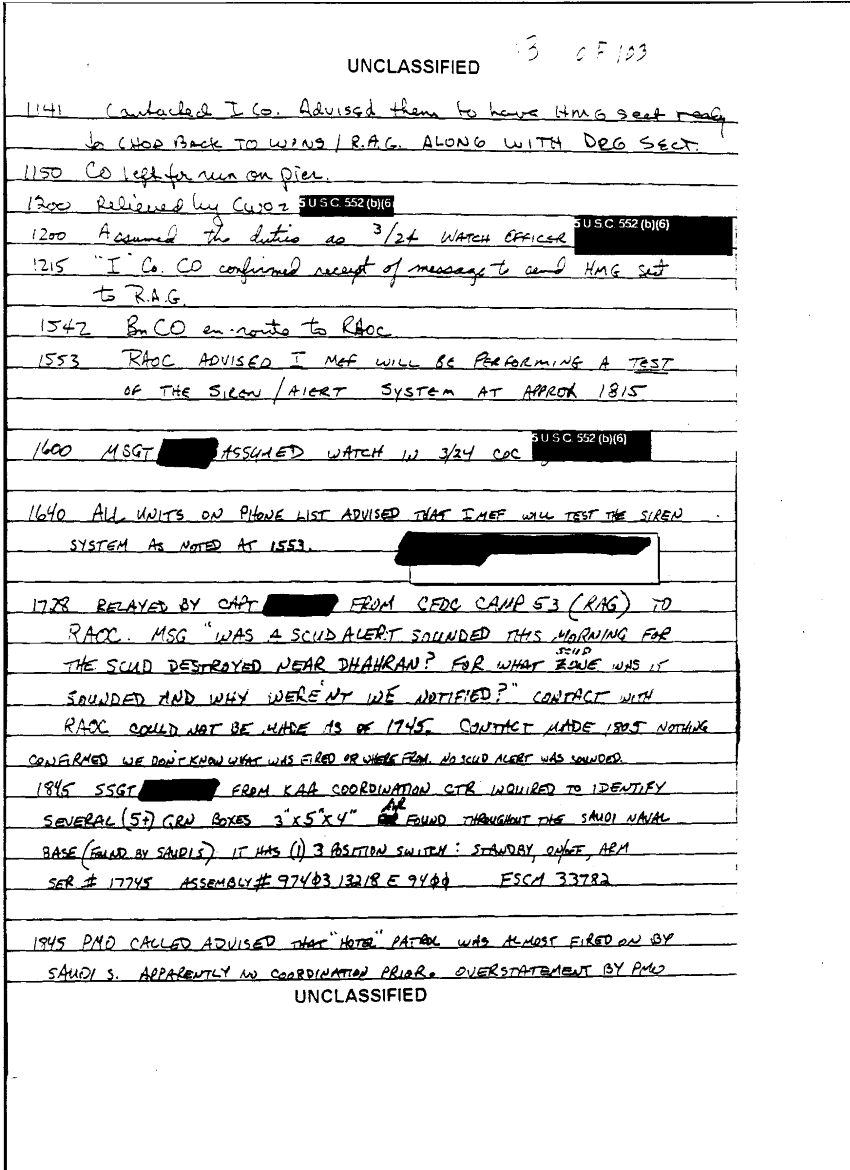 3 OF 103
UNCLASSIFIED
1141 Contacted I Co. Advised them to have HMG sect ready
to CHOP BACK TO WPNS / R.A.G. ALONG WITH DRG SECT.
1150 CO left for run on pier.
1200 Relieved by CWO2 5 U.S.C. 552 (b)(6)
1200 Assumed the duties as 3/24 WATCH OFFICER 5 U.S.C. 552 (b)(6)
1215 "I" Co. CO confirmed receipt of message to send HMG sect
to R.A.G.
1542 Bn CO en-route to RAOC
1553 RAOC ADVISED I MEF WILL BE PERFORMING A TEST
OF THE SIREN / ALERT SYSTEM AT APPROX 1815
1600 MSGT ASSUMED WATCH IN 3/24 COC 5 U.S.C. 552 (b)(6)
1640 ALL UNITS ON PHONE LIST ADVISED THAT I MEF WILL TEST THE SIREN
SYSTEM AS NOTED AT 1553.
1728 RELAYED BY CAPT FROM CFDC CAMP 53 (RAG) TO
RAOC. MSG "WAS A SCUD ALERT SOUNDED THIS MORNING FOR
THE SCUD DESTROYED NEAR DHAHRAN? FOR WHAT SCUD ZONE WAS IT
SOUNDED AND WHY WERE'NT WE NOTIFIED?" CONTACT WITH
RAOC COULD NOT BE MADE AS OF 1745. CONTACT MADE 1805 NOTHING
CONFIRMED WE DON'T KNOW WHAT WAS FIRED OR WHERE FROM. NO SCUD ALERT WAS SOUNDED.
1845 SSGT FROM KAA COORDINATION CTR INQUIRED TO IDENTIFY
SEVERAL (5+) GRN BOXES 3"x5"x4" FOUND THROUGHOUT THE SAUDI NAVAL
BASE (FOUND BY SAUDIS) IT HAS (1) 3 POSITION SWITCH: STANDBY, ON/OFF, ARM
SER # 17745 ASSEMBLY # 97403 13218 E 9400 FSCM 33782
1945 PMO CALLED ADVISED THAT "HOTEL" PATROL WAS ALMOST FIRED ON BY
SAUDI S. APPARENTLY NO COORDINATION PRIOR. OVERSTATEMENT BY PMO
UNCLASSIFIED